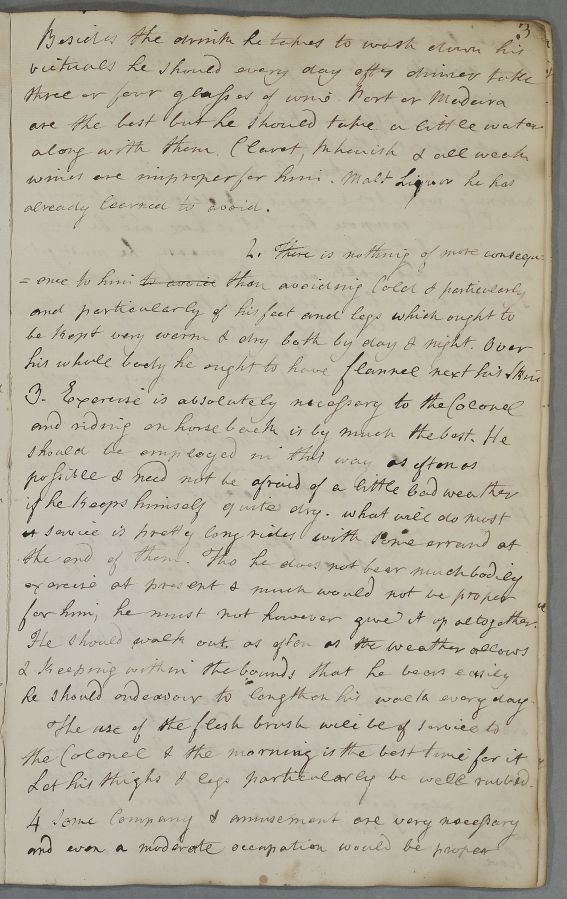 3
Besides the drink he takes to wash down his
victuals he should every day after dinner take
three or four glasses of wine. Port or Madeira
are the best but he should take a little water
along with them. Claret, Rhenish & all weak
wines are improper for him. Malt Liquor he has
already learned to avoid.
2. There is nothing of more consequ-
=ence to him to avoid than avoiding Cold & particularly
and particularly of his feet and legs which ought to
be kept very warm & dry both by day & night. Over
his whole body he ought to have flannel next his skin
3. Exercise is absolutely necessary to the Colonel
and riding on horse back is by much the best. He
should be employed in this way as often as
possible & need not be afraid of a little bad weather
if he keeps himself quite dry. what will do most
service is pretty long rides with some errand at
the end of them. Tho he does not bear much bodily
exercise at present & much would not be proper
for him, he must not however give it up altogether.
He should walk out as often as the weather allows
& keeping within the bounds that he bears easily
he should endeavour to lengthen his walk every day.
The use of the flesh brush will be of service to
the Colonel & the morning is the best time for it
Let his thighs & legs particularly be well rubbed.
4 Some Company & amusement are very necessary
and even a moderate occupation would be proper